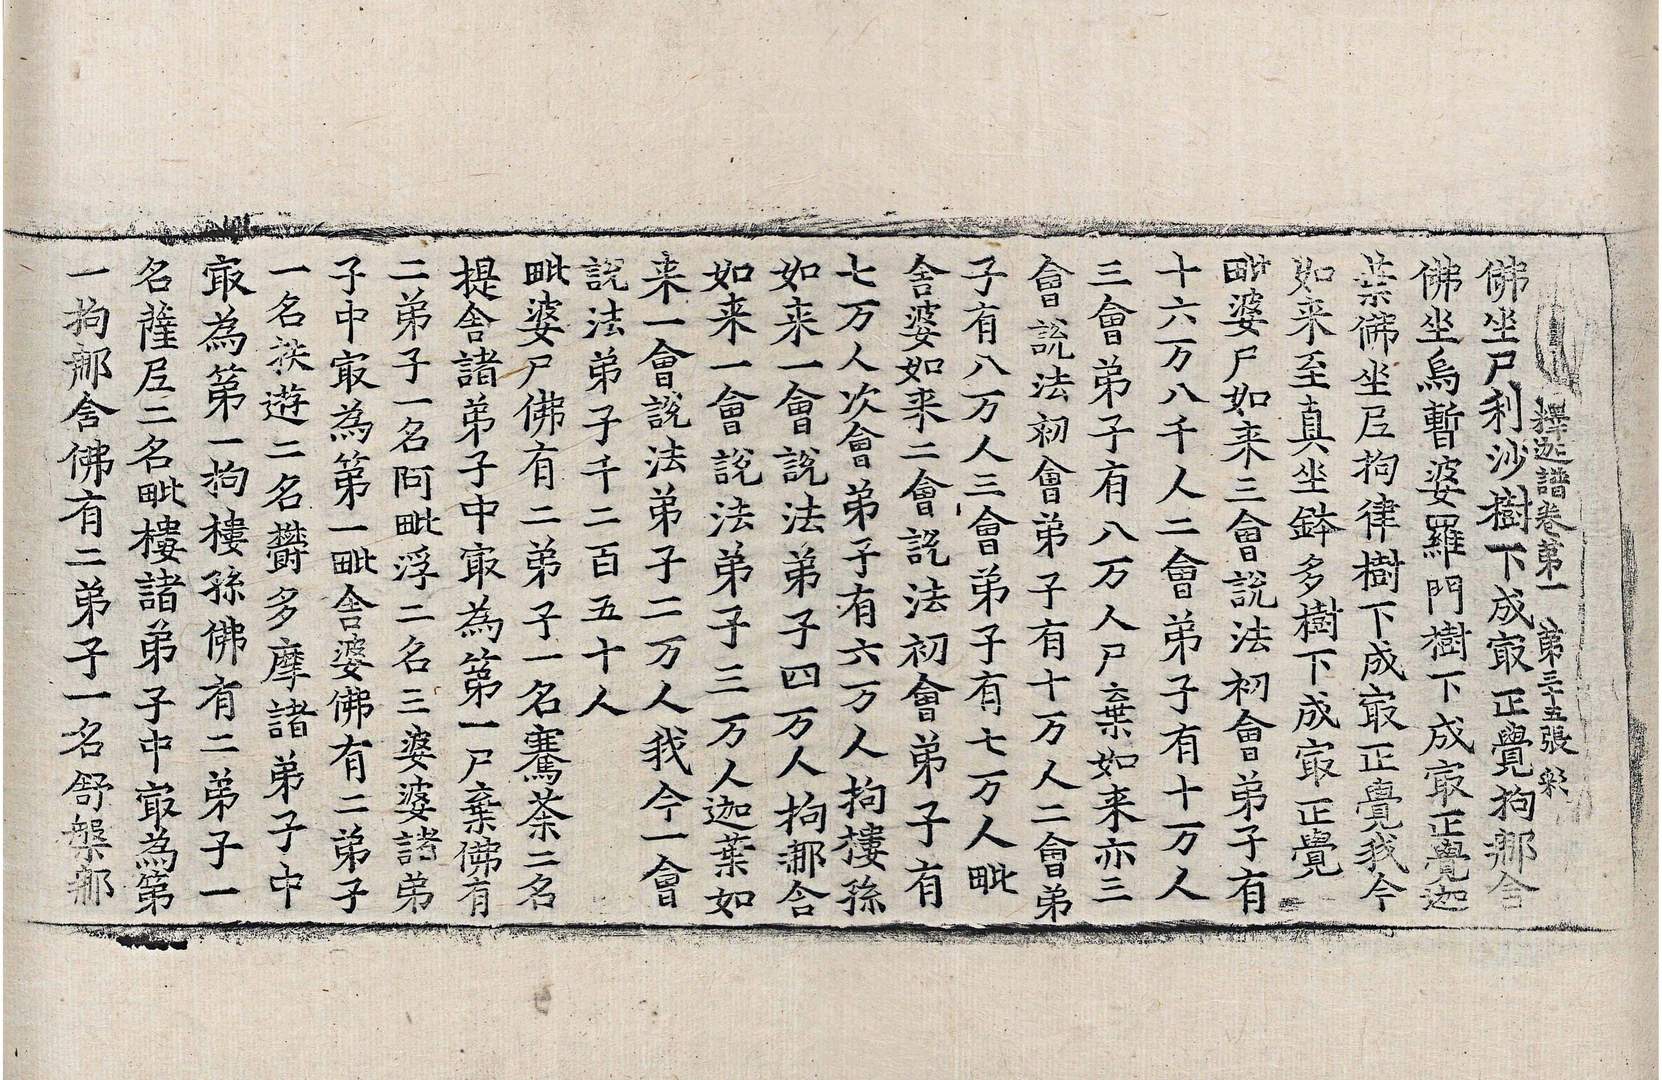 釋迦譜卷第一　第三十五張　彩
佛坐尸利沙樹下成㝡正覺拘那舍
佛坐烏暫婆羅門樹下成㝡正覺迦
葉佛坐𡰱拘律樹下成㝡正覺我今
如来至真坐鉢多樹下成㝡正覺
毗婆尸如来三會說法初會弟子有
十六万八千人二會弟子有十万人
三會弟子有八万人尸棄如来亦三
會說法初會弟子有十万人二會弟
子有八万人三會弟子有七万人毗
舍婆如来二會說法初會弟子有
七万人次會弟子有六万人拘樓孫
如来一會說法弟子四万人拘那含
如来一會說法弟子三万人迦葉如
来一會說法弟子二万人我今一會
說法弟子千二百五十人
毗婆尸佛有二弟子一名騫荼二名
提舍諸弟子中㝡為第一尸棄佛有
二弟子一名阿毗浮二名三婆婆諸弟
子中㝡為第一毗舍婆佛有二弟子
一名扶遊二名欝多摩諸弟子中
㝡為第一拘樓孫佛有二弟子一
名薩𡰱二名毗樓諸弟子中㝡為第
一拘那舍佛有二弟子一名舒槃那